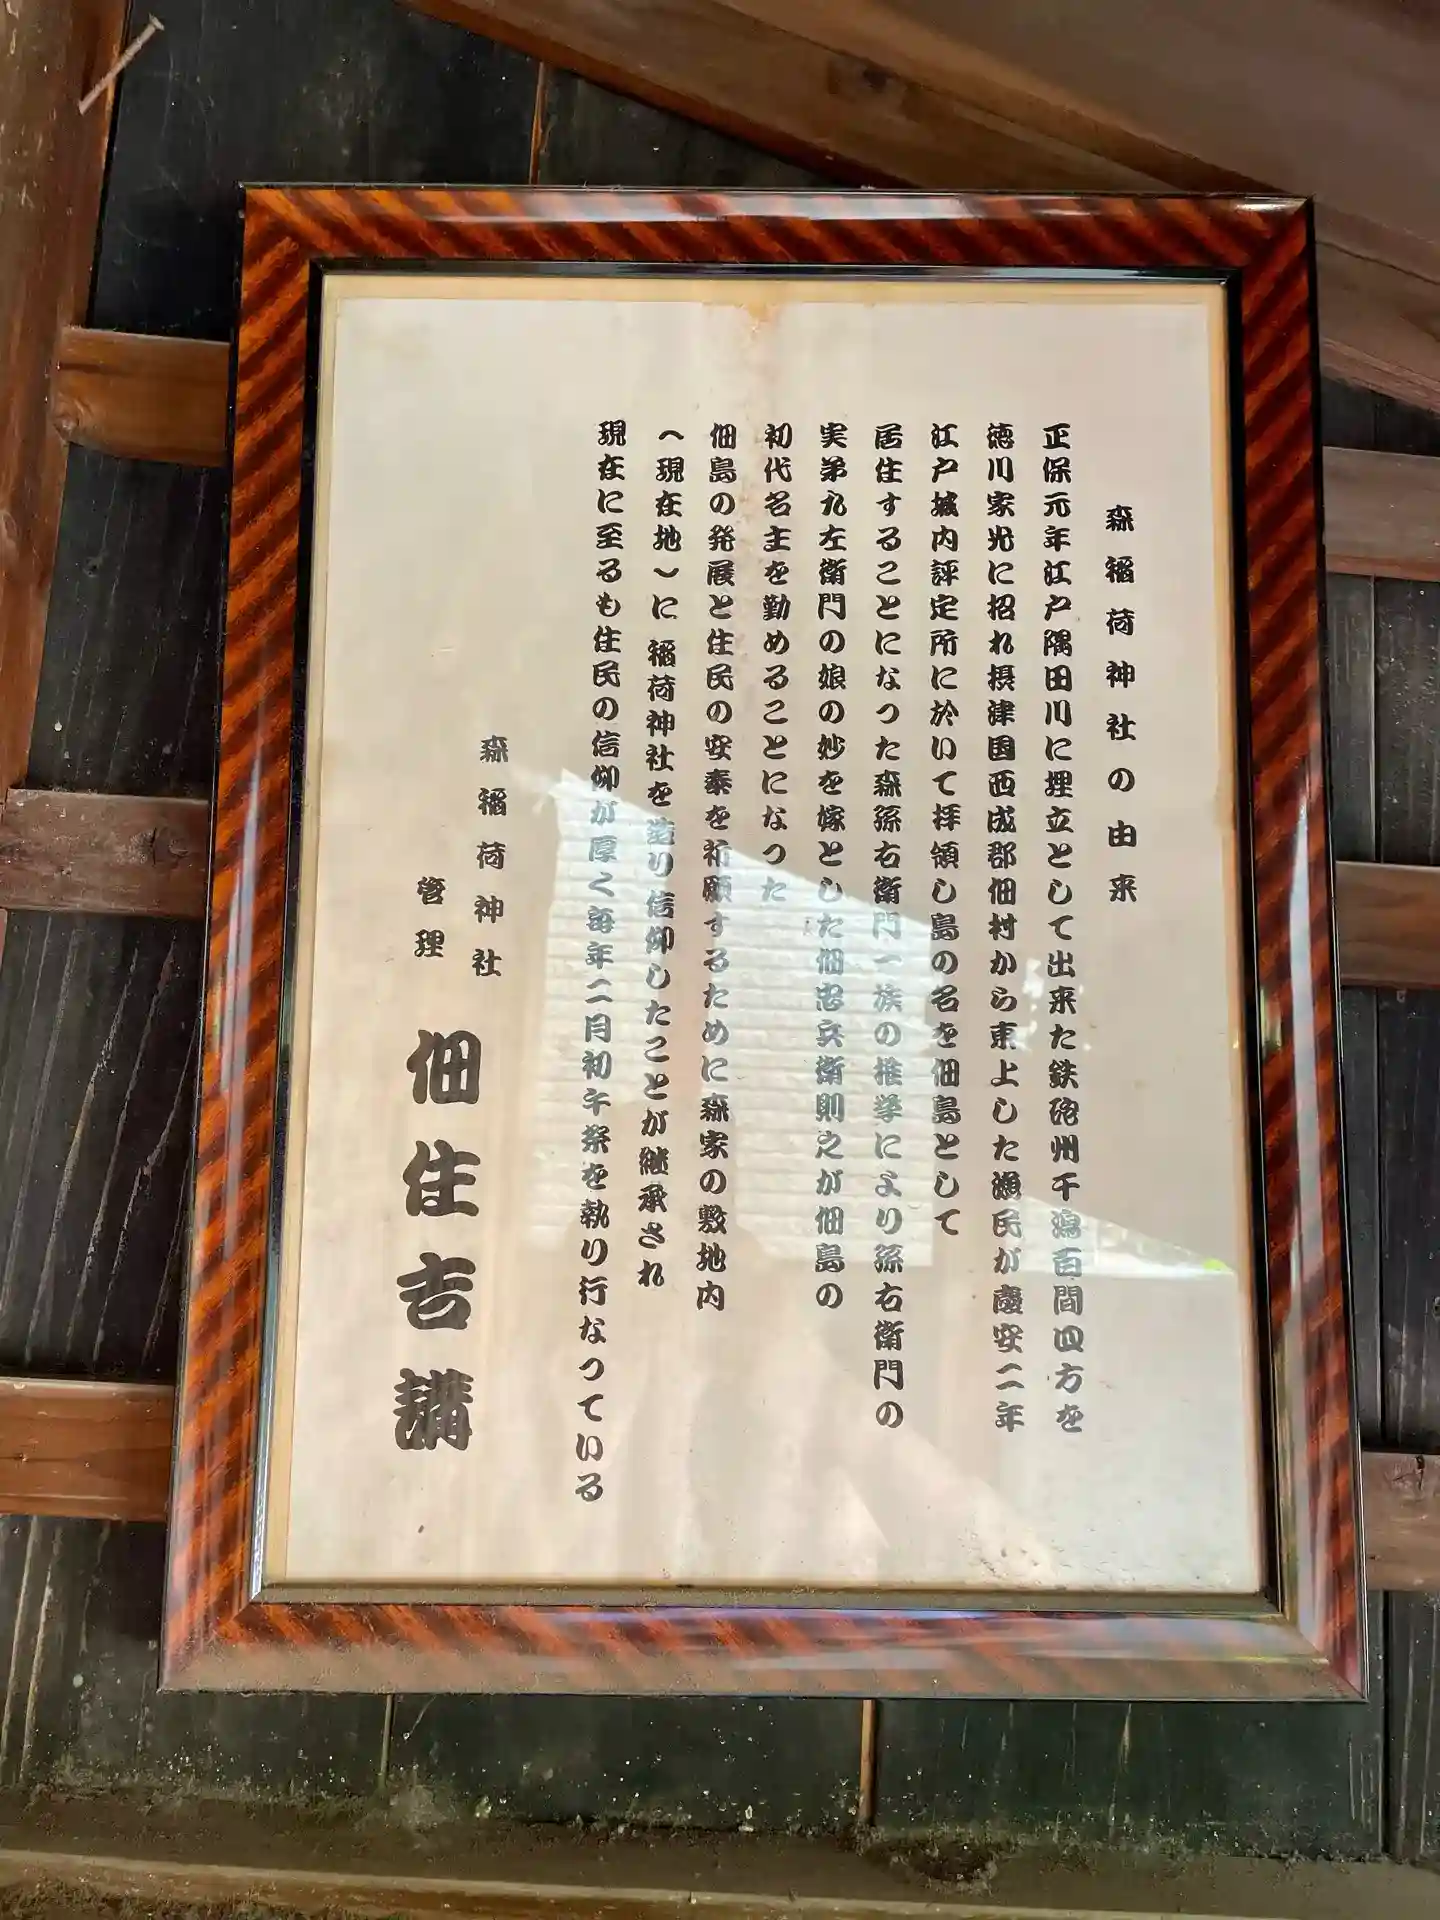 森稲荷神社の由来
正保元年江戸隅田川に埋立として出来た鉄砲州干潟百間四方を
徳川家光に招れ摂津国西成郡佃村から東上した漁民が慶安二年
江戸城内評定所に於いて拝領し島の名を佃島として
居住することになった森孫右衛門一族の推挙により孫右衛門の
実弟九左衛門の娘の妙を嫁とした佃忠兵衛則之が佃島の
初代名主を勤めることになった
佃島の発展と住民の安泰を祈願するために森家の敷地内
(現在地)に稲荷神社を造り信仰したことが継承され
現在に至るも住民の信仰が厚く毎年二月初午祭を執り行なっている
森稲荷神社
管理 佃住吉講